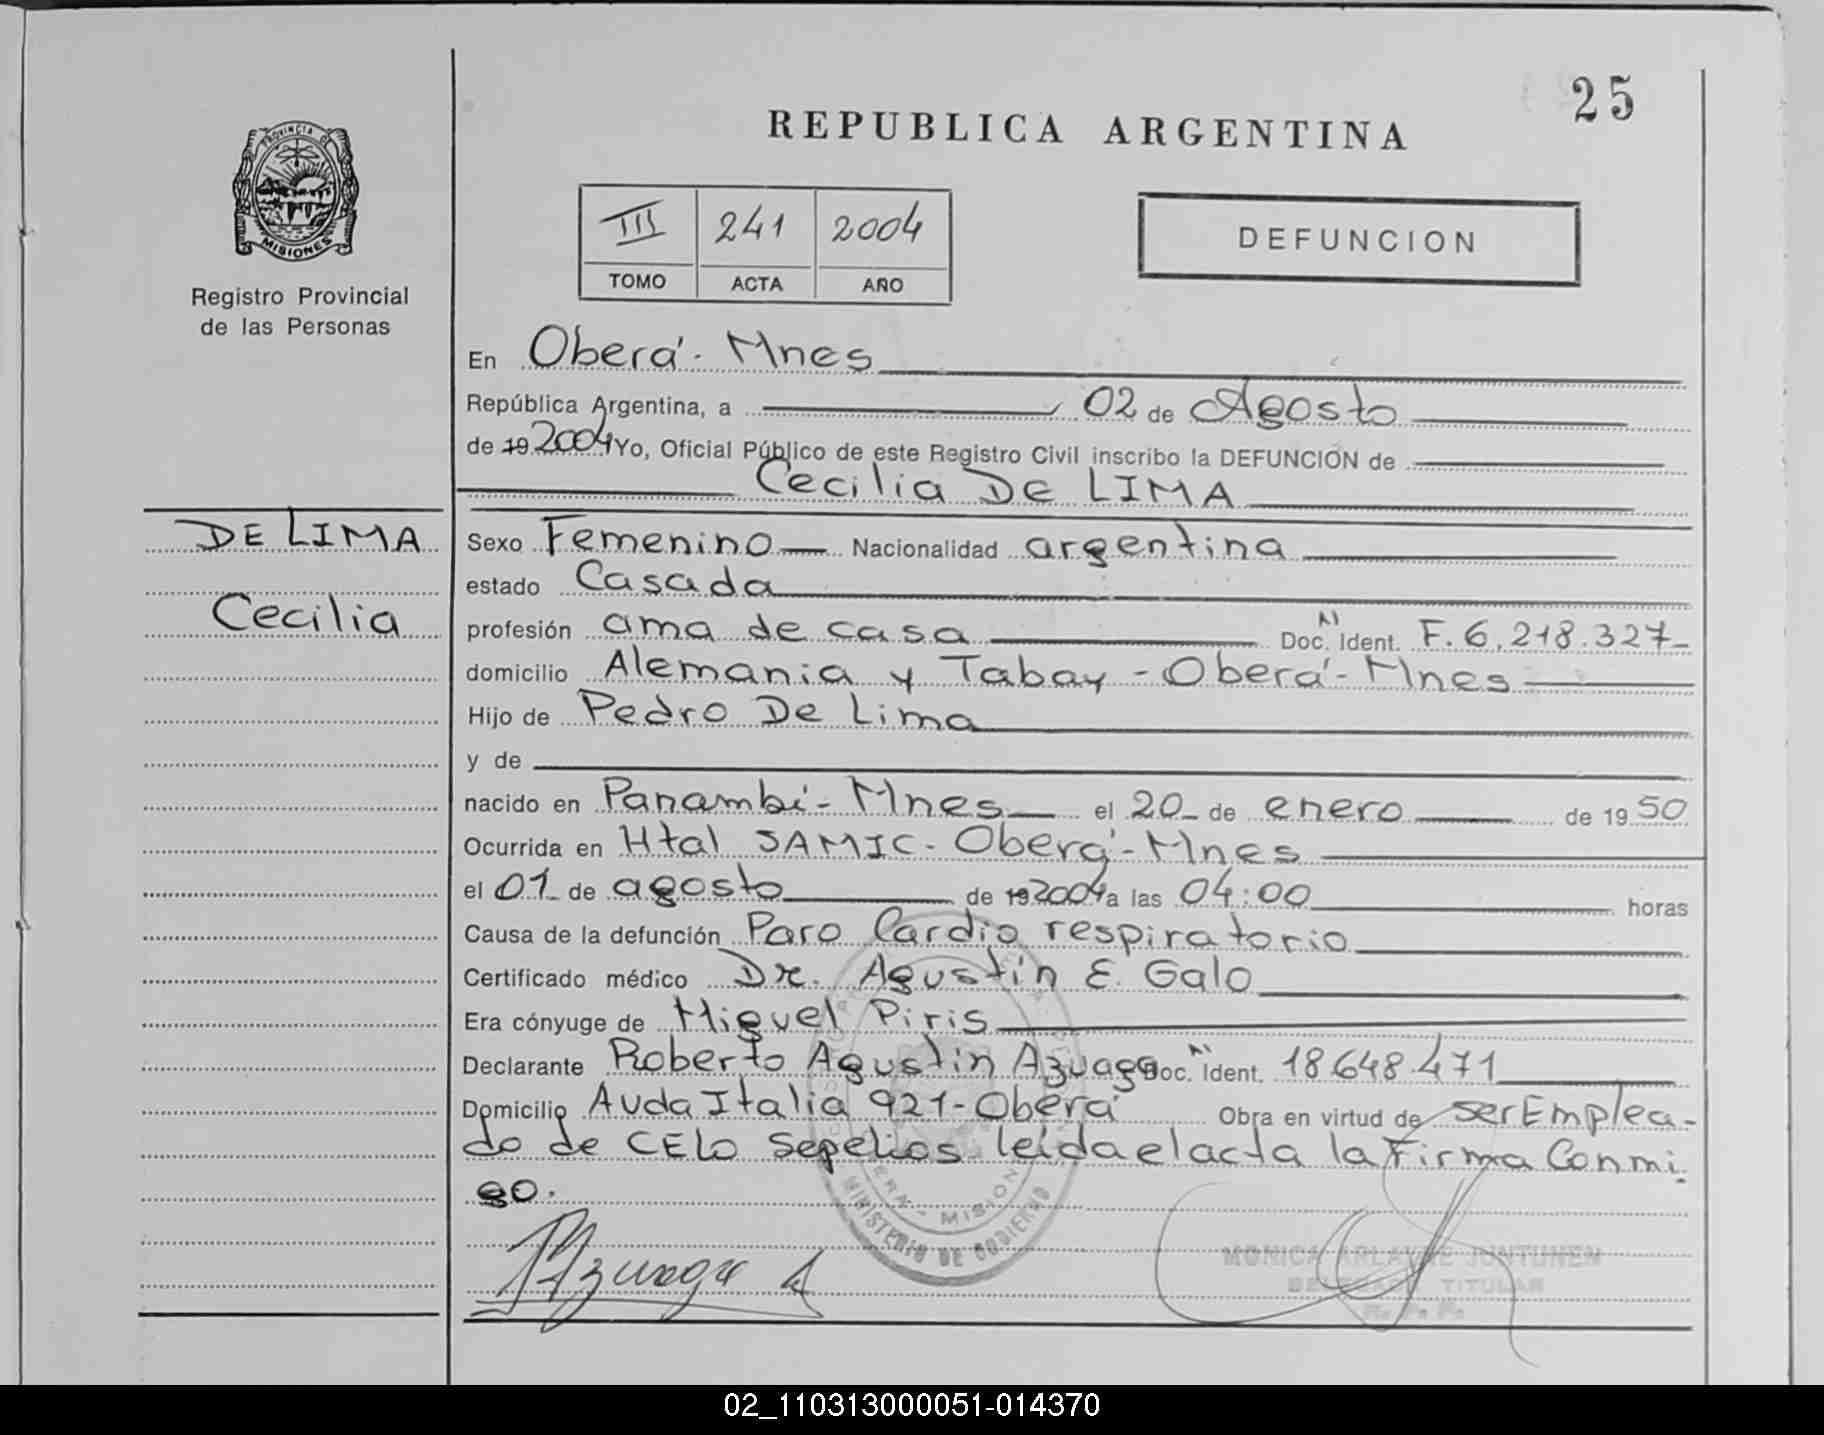 25
REPUBLICA ARGENTINA
PROVINCIA DE
MISIONES
Registro Provincial
de las Personas
III 241 2004
TOMO ACTA AÑO
DEFUNCION
En Oberá - Mnes
República Argentina, a 02 de Agosto
de 19 2004 Yo, Oficial Público de este Registro Civil inscribo la DEFUNCIÓN de
Cecilia DE LIMA
DE LIMA
Cecilia
Sexo Femenino Nacionalidad argentina
estado Casada
profesión ama de casa Doc. Ident. F. 6.218.327-
domicilio Alemania y Tabay - Oberá - Mnes
Hijo de Pedro De Lima
y de
nacido en Panambí - Mnes el 20 de enero de 1950
Ocurrida en Htal SAMIC - Oberá - Mnes
el 01 de agosto de 19 2004 a las 04:00 horas
Causa de la defunción Paro Cardio respiratorio
Certificado médico Dr. Agustín E. Galo
Era cónyuge de Miguel Piris
Declarante Roberto Agustín Azuaga Doc. Ident. 18.648.471
Domicilio Avda Italia 921 - Oberá Obra en virtud de ser Emplea-
do de CELO sepelios leída el acta la Firma Conmi-
go.
MINISTERIO DE GOBIERNO
MONICA ARLAYNE JUNTUNEN
DELEGADA TITULAR
R. P. P.
02_110313000051-014370